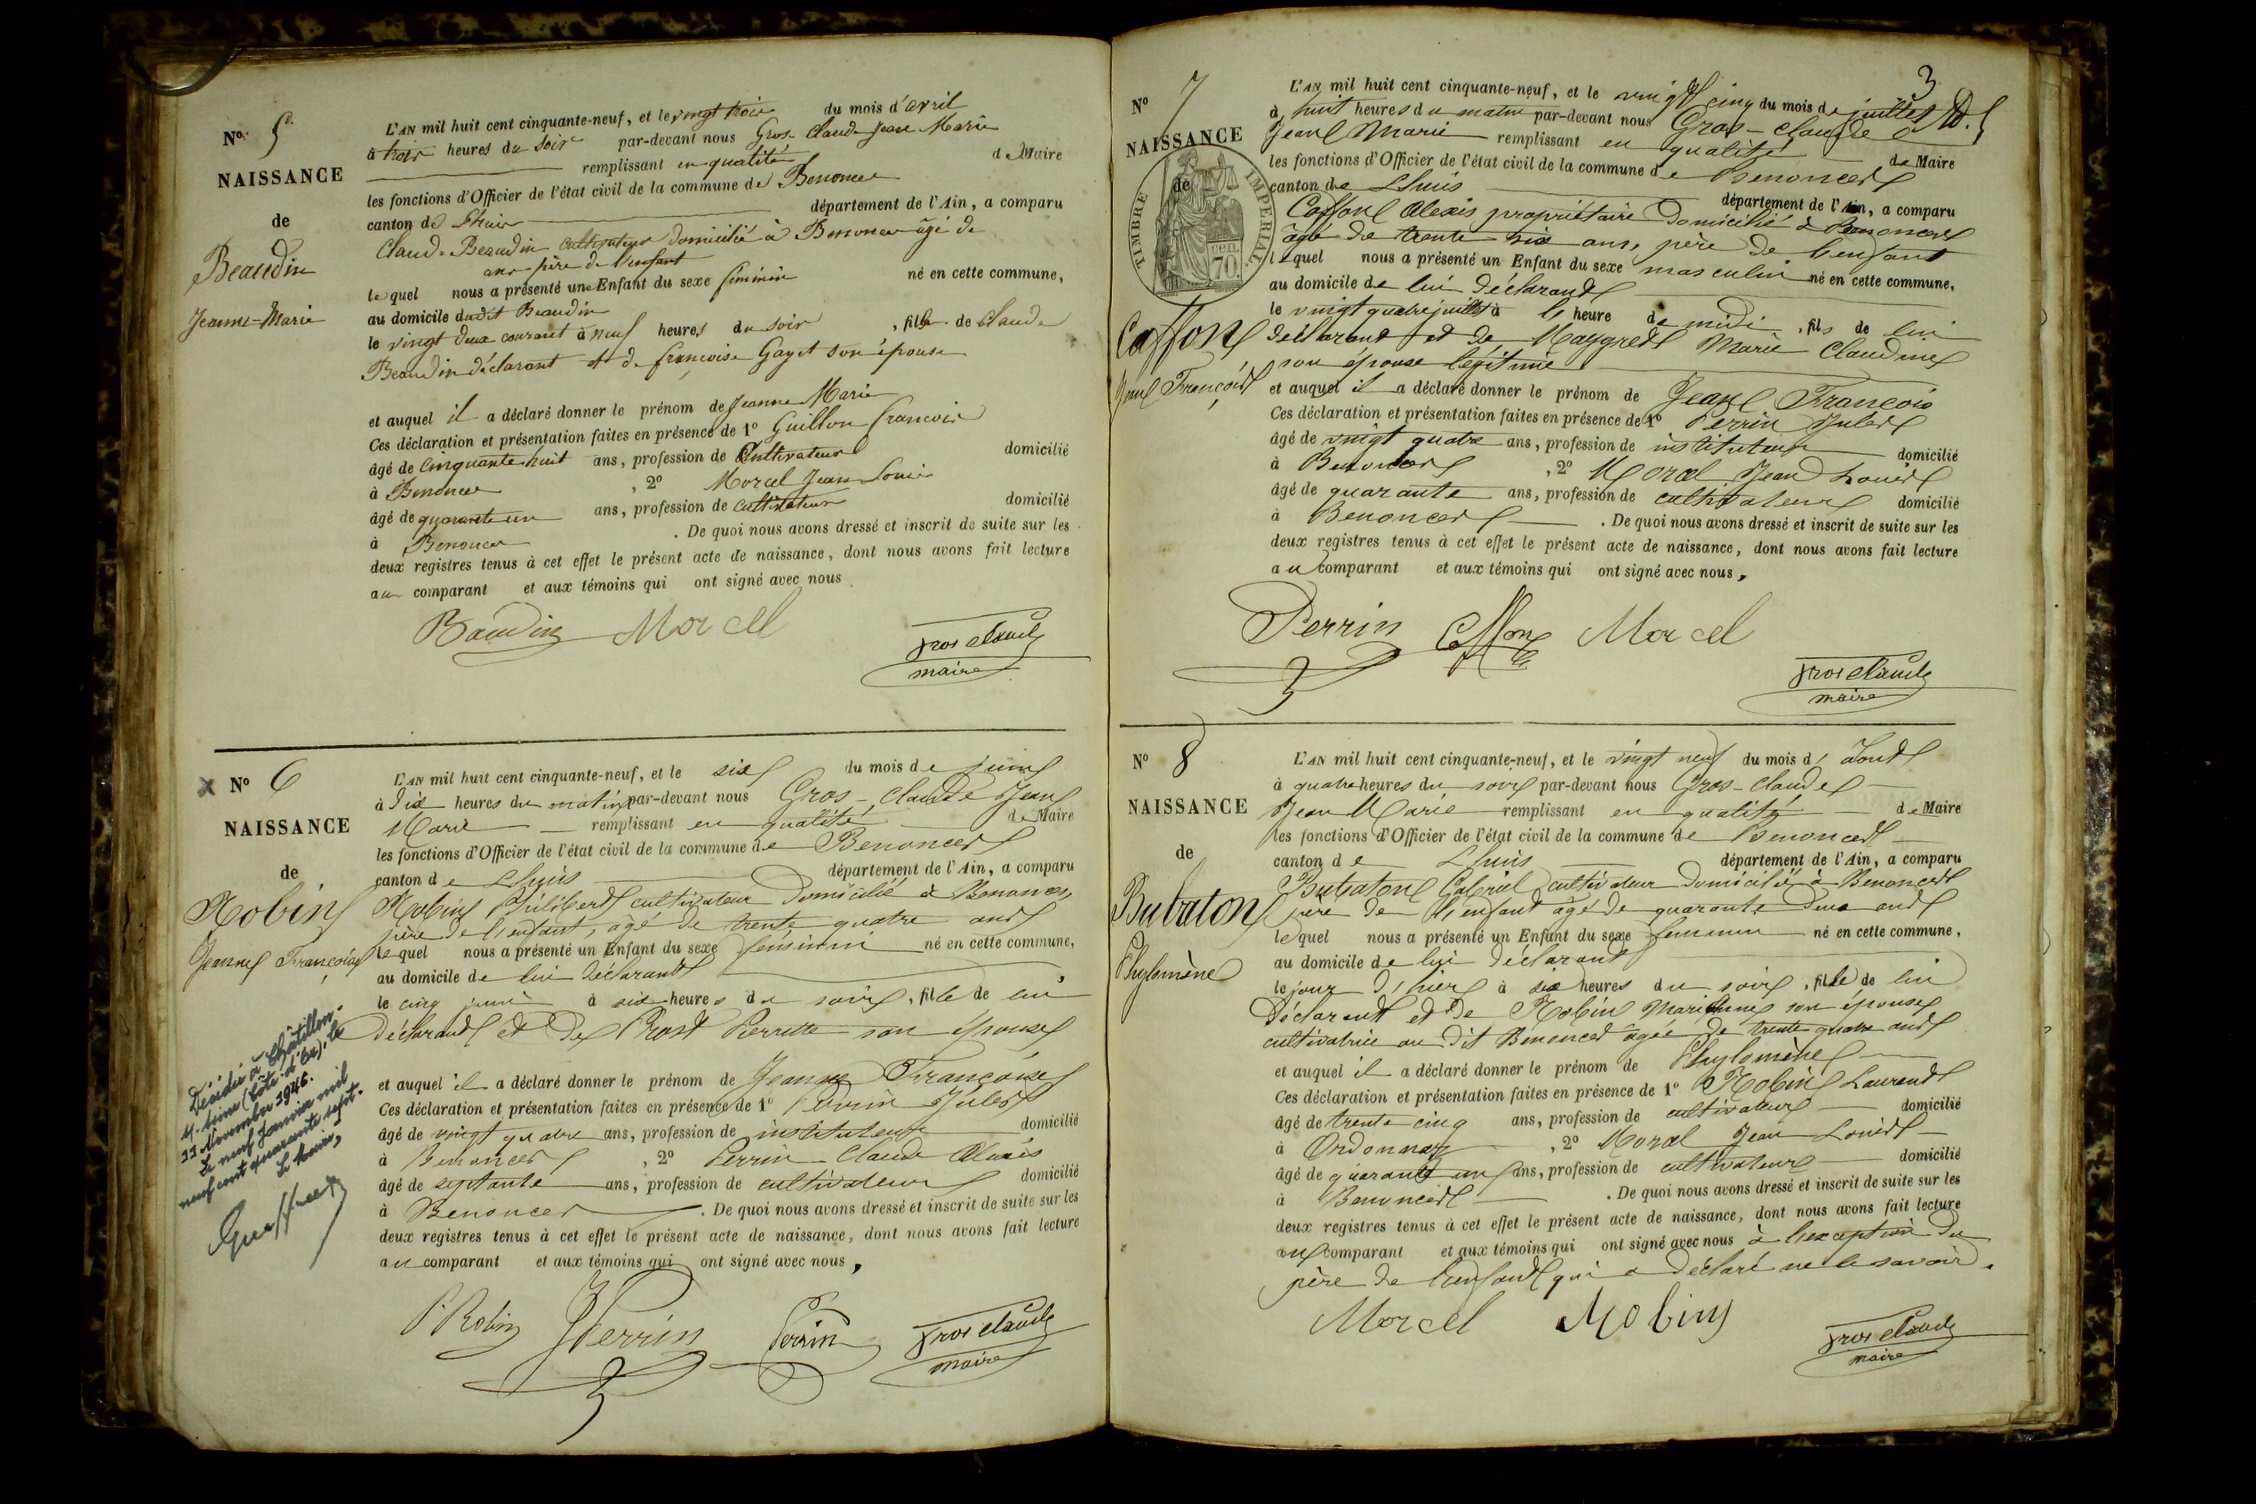 N° 5
NAISSANCE
de
Beaudin
Jeanne-Marie
L'AN mil huit cent cinquante-neuf, et le vingt trois du mois d'avril
à trois heures du soir par-devant nous Gros Claude Jean Marie
remplissant en qualité de Maire
les fonctions d'Officier de l'état civil de la commune de Benonces
canton de Lhuis département de l'Ain, a comparu
Claude Beaudin cultivateur domicilié à Benonces âgé de
ans père de l'enfant
lequel nous a présenté une Enfant du sexe féminin né en cette commune,
au domicile dudit Beaudin
le vingt deux courant à neuf heures du soir, fille de Claude
Beaudin déclarant et de françoise Gayet son épouse
et auquel il a déclaré donner le prénom de Jeanne Marie
Ces déclaration et présentation faites en présence de 1° Guillon francois
âgé de Cinquante huit ans, profession de Cultivateur domicilié
à Benonces, 2° Morcel Jean Louis
âgé de quarante un ans, profession de cultivateur domicilié
à Benonces. De quoi nous avons dressé et inscrit de suite sur les
deux registres tenus à cet effet le présent acte de naissance, dont nous avons fait lecture
au comparant et aux témoins qui ont signé avec nous.
Baudin Morcel
gros claude
maire
x N° 6
NAISSANCE
de
Robin
Jeanne Françoise
Décédée à Châtillon-
s/-Seine (Côte-d'Or), le
11 Novembre 1946.
Le neuf Janvier mil
neuf cent quarante sept.
Le Maire,
L'AN mil huit cent cinquante-neuf, et le six du mois de juin
à dix heures du matin par-devant nous Gros-Claude Jean
Marie remplissant en qualité de Maire
les fonctions d'Officier de l'état civil de la commune de Benonces
canton de Lhuis département de l'Ain, a comparu
Robin Philibert cultivateur domicilié à Benonces,
père de l'enfant, âgé de trente quatre ans
lequel nous a présenté un Enfant du sexe féminin né en cette commune,
au domicile de lui déclarant,
le cinq juin à six heures du soir, fille de lui
déclarant et de Prost Perrette son épouse
et auquel il a déclaré donner le prénom de Jeanne Françoise
Ces déclaration et présentation faites en présence de 1° Perrin Jules
âgé de vingt quatre ans, profession de instituteur domicilié
à Benonces, 2° Perrin Claude Alexis
âgé de septante ans, profession de cultivateur domicilié
à Benonces. De quoi nous avons dressé et inscrit de suite sur les
deux registres tenus à cet effet le présent acte de naissance, dont nous avons fait lecture
au comparant et aux témoins qui ont signé avec nous,
P. Robin JPerrin Perrin
gros claude
maire
3
N° 7
NAISSANCE
de
TIMBRE IMPERIAL
70.
Caffon
Jean François
L'AN mil huit cent cinquante-neuf, et le vingt cinq du mois de juillet
à huit heures du matin par-devant nous Gros-claude
Jean Marie remplissant en qualité de Maire
les fonctions d'Officier de l'état civil de la commune de Benonces
canton de Lhuis département de l'Ain, a comparu
Caffon Alexis propriétaire domicilié à Benonces
âgé de trente six ans, père de l'enfant
lequel nous a présenté un Enfant du sexe masculin né en cette commune,
au domicile de lui déclarant
le vingt quatre juillet à heure de midi, fils de lui
déclarant et de Maygret Marie Claudine
son épouse légitime
et auquel il a déclaré donner le prénom de Jean François
Ces déclaration et présentation faites en présence de 1° Perrin Jules
âgé de vingt quatre ans, profession de instituteur domicilié
à Benonces, 2° Morcel Jean Louis
âgé de quarante ans, profession de cultivateur domicilié
à Benonces. De quoi nous avons dressé et inscrit de suite sur les
deux registres tenus à cet effet le présent acte de naissance, dont nous avons fait lecture
au comparant et aux témoins qui ont signé avec nous,
Perrin Caffon Morcel
gros claude
maire
N° 8
NAISSANCE
de
Bubaton
Phylomène
L'AN mil huit cent cinquante-neuf, et le vingt neuf du mois d'Août
à quatre heures du soir par-devant nous Gros-claude
Jean Marie remplissant en qualité de Maire
les fonctions d'Officier de l'état civil de la commune de Benonces
canton de Lhuis département de l'Ain, a comparu
Bubaton Gabriel cultivateur domicilié à Benonces
père de l'enfant âgé de quarante deux ans
lequel nous a présenté un Enfant du sexe feminin né en cette commune,
au domicile de lui déclarant
le jour d'hier à six heures du soir, fille de lui
déclarant et de Robin Marianne son épouse
cultivatrice au dit Benonces âgée de trente quatre ans
et auquel il a déclaré donner le prénom de Phylomène
Ces déclaration et présentation faites en présence de 1° Robin Laurent
âgé de trente cinq ans, profession de cultivateur domicilié
à Ordonnaz, 2° Morcel Jean Louis
âgé de quarante un ans, profession de cultivateur domicilié
à Benonces. De quoi nous avons dressé et inscrit de suite sur les
deux registres tenus à cet effet le présent acte de naissance, dont nous avons fait lecture
au comparant et aux témoins qui ont signé avec nous à l'exception du
père de l'enfant qui a déclaré ne le savoir.
Morcel Robin
gros claude
maire